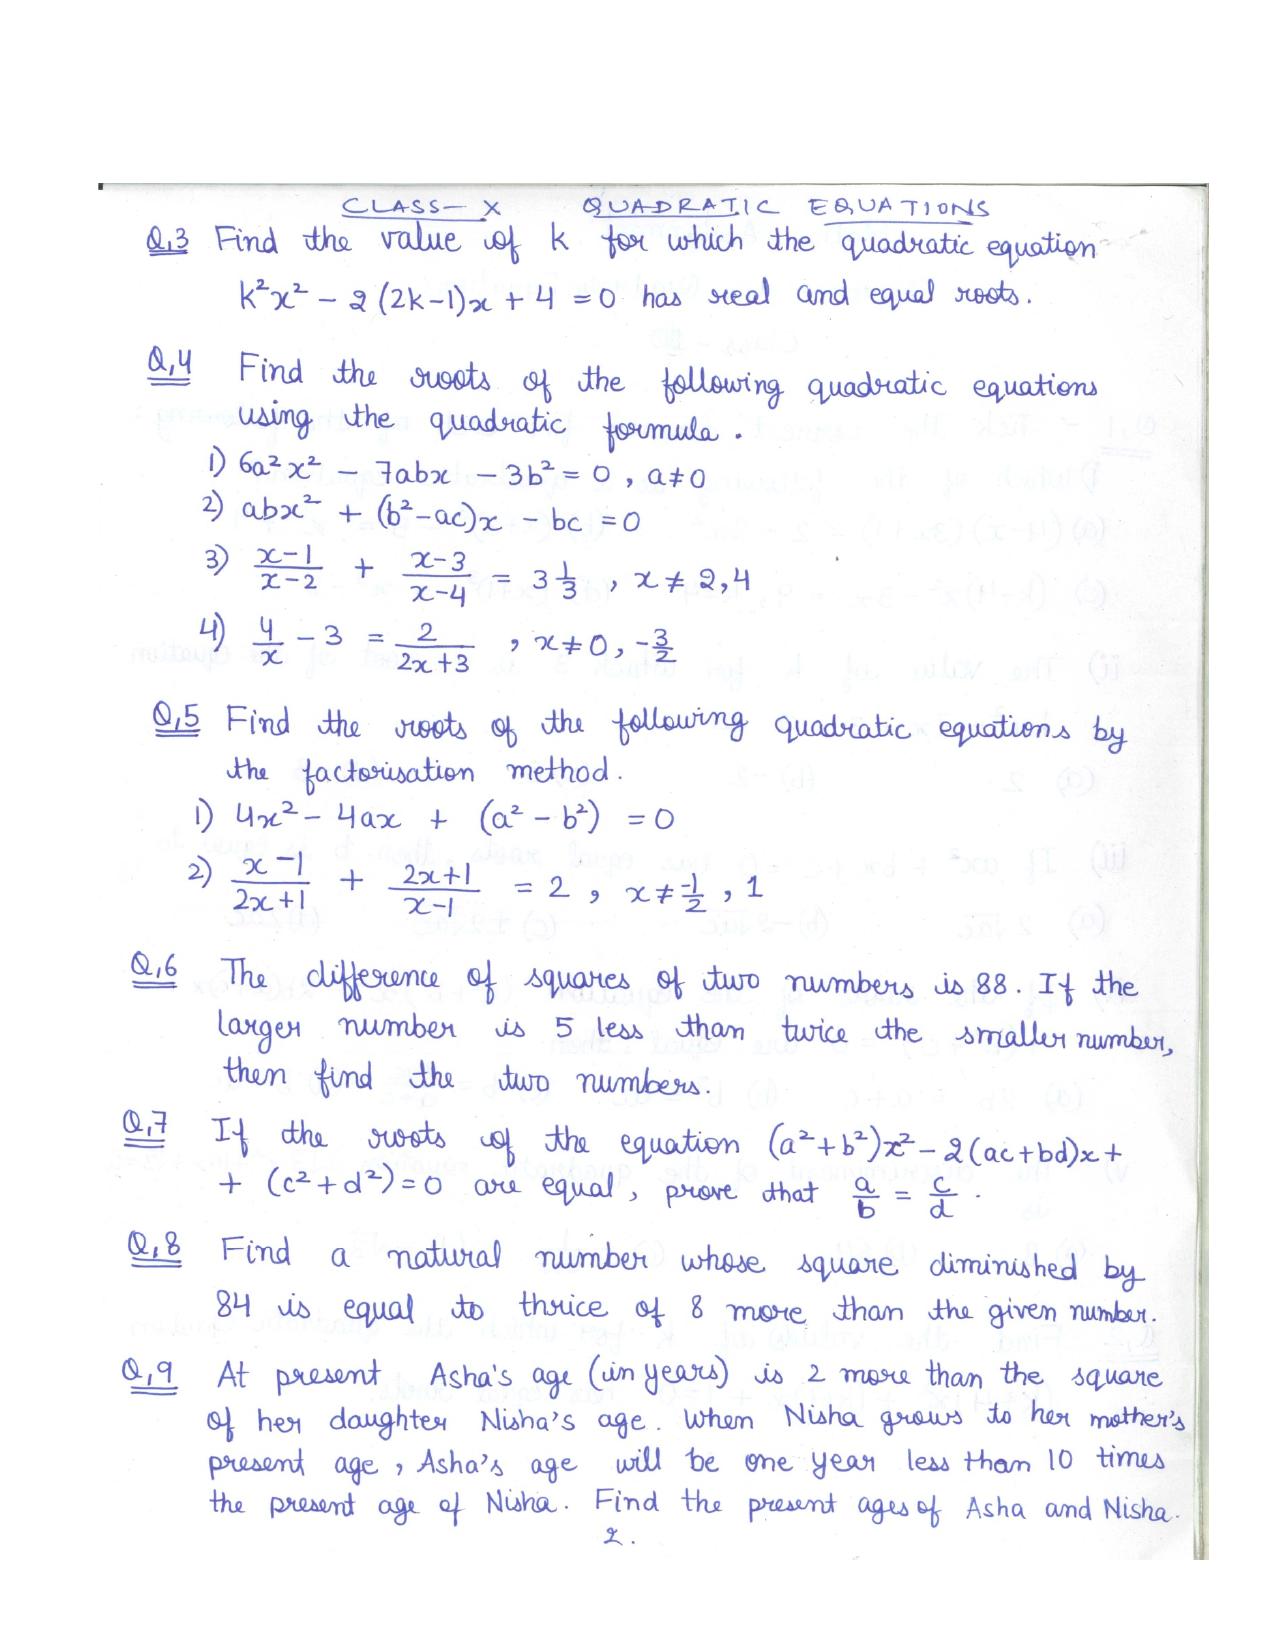 CLASS- X QUADRATIC EQUATIONS
Q.3 Find the value of k for which the quadratic equation
k²x² - 2(2k-1)x + 4 = 0 has real and equal roots.
Q.4 Find the roots of the following quadratic equations
using the quadratic formula.
1) 6a²x² - 7abx - 3b² = 0, a≠0
2) abx² + (b²-ac)x - bc = 0
3) (x-1)/(x-2) + (x-3)/(x-4) = 3 1/3, x ≠ 2,4
4) 4/x - 3 = 2/(2x+3), x≠0, -3/2
Q.5 Find the roots of the following quadratic equations by
the factorisation method.
1) 4x² - 4ax + (a² - b²) = 0
2) (x-1)/(2x+1) + (2x+1)/(x-1) = 2, x ≠ -1/2, 1
Q.6 The difference of squares of two numbers is 88. If the
larger number is 5 less than twice the smaller number,
then find the two numbers.
Q.7 If the roots of the equation (a²+b²)x² - 2(ac+bd)x +
+ (c²+d²) = 0 are equal, prove that a/b = c/d.
Q.8 Find a natural number whose square diminished by
84 is equal to thrice of 8 more than the given number.
Q.9 At present Asha's age (in years) is 2 more than the square
of her daughter Nisha's age. When Nisha grows to her mother's
present age, Asha's age will be one year less than 10 times
the present age of Nisha. Find the present ages of Asha and Nisha.
2.